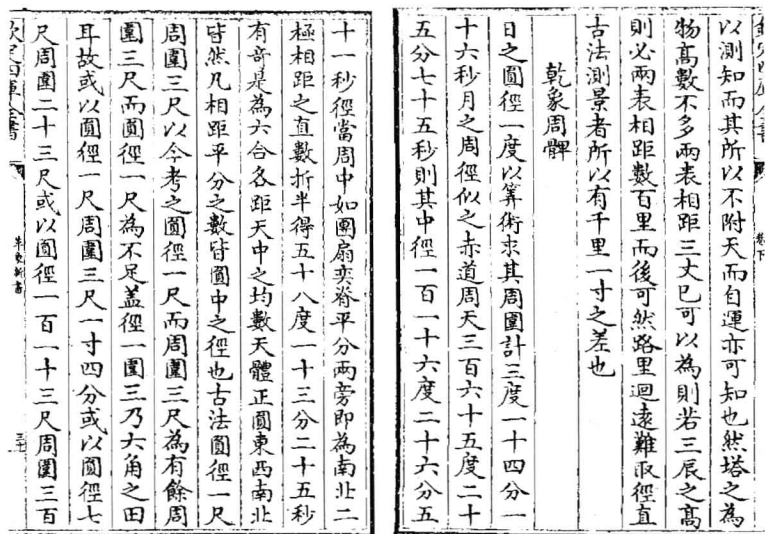 以測知而其所以不附天而自運亦可知也然塔之為
物高數不多兩表相距三丈已可以為則若三辰之高
則必兩表相距數百里而後可然路里迴遠難取徑直
古法測景者所以有千里一寸之差也
乾象周髀
日之圓徑一度以筭術求其周圍計三度一十四分一
十六秒月之周徑似之赤道周天三百六十五度二十
五分七十五秒則其中徑一百一十六度二十六分五
十一秒徑當周中如團扇奕脊平分兩旁即為南北二
極相距之直數折半得五十八度一十三分二十五秒
有奇是為六合各距天中之均數天體正圓東西南北
皆然凡相距平分之數皆圓中之徑也古法圓徑一尺
周圍三尺以今考之圓徑一尺而周圍三尺為有餘周
圍三尺而圓徑一尺為不足蓋徑一圍三乃六角之田
耳故或以圓徑一尺周圍三尺一寸四分或以圓徑七
尺周圍二十三尺或以圓徑一百一十三尺周圍三百
欽定四庫全書
革象新書